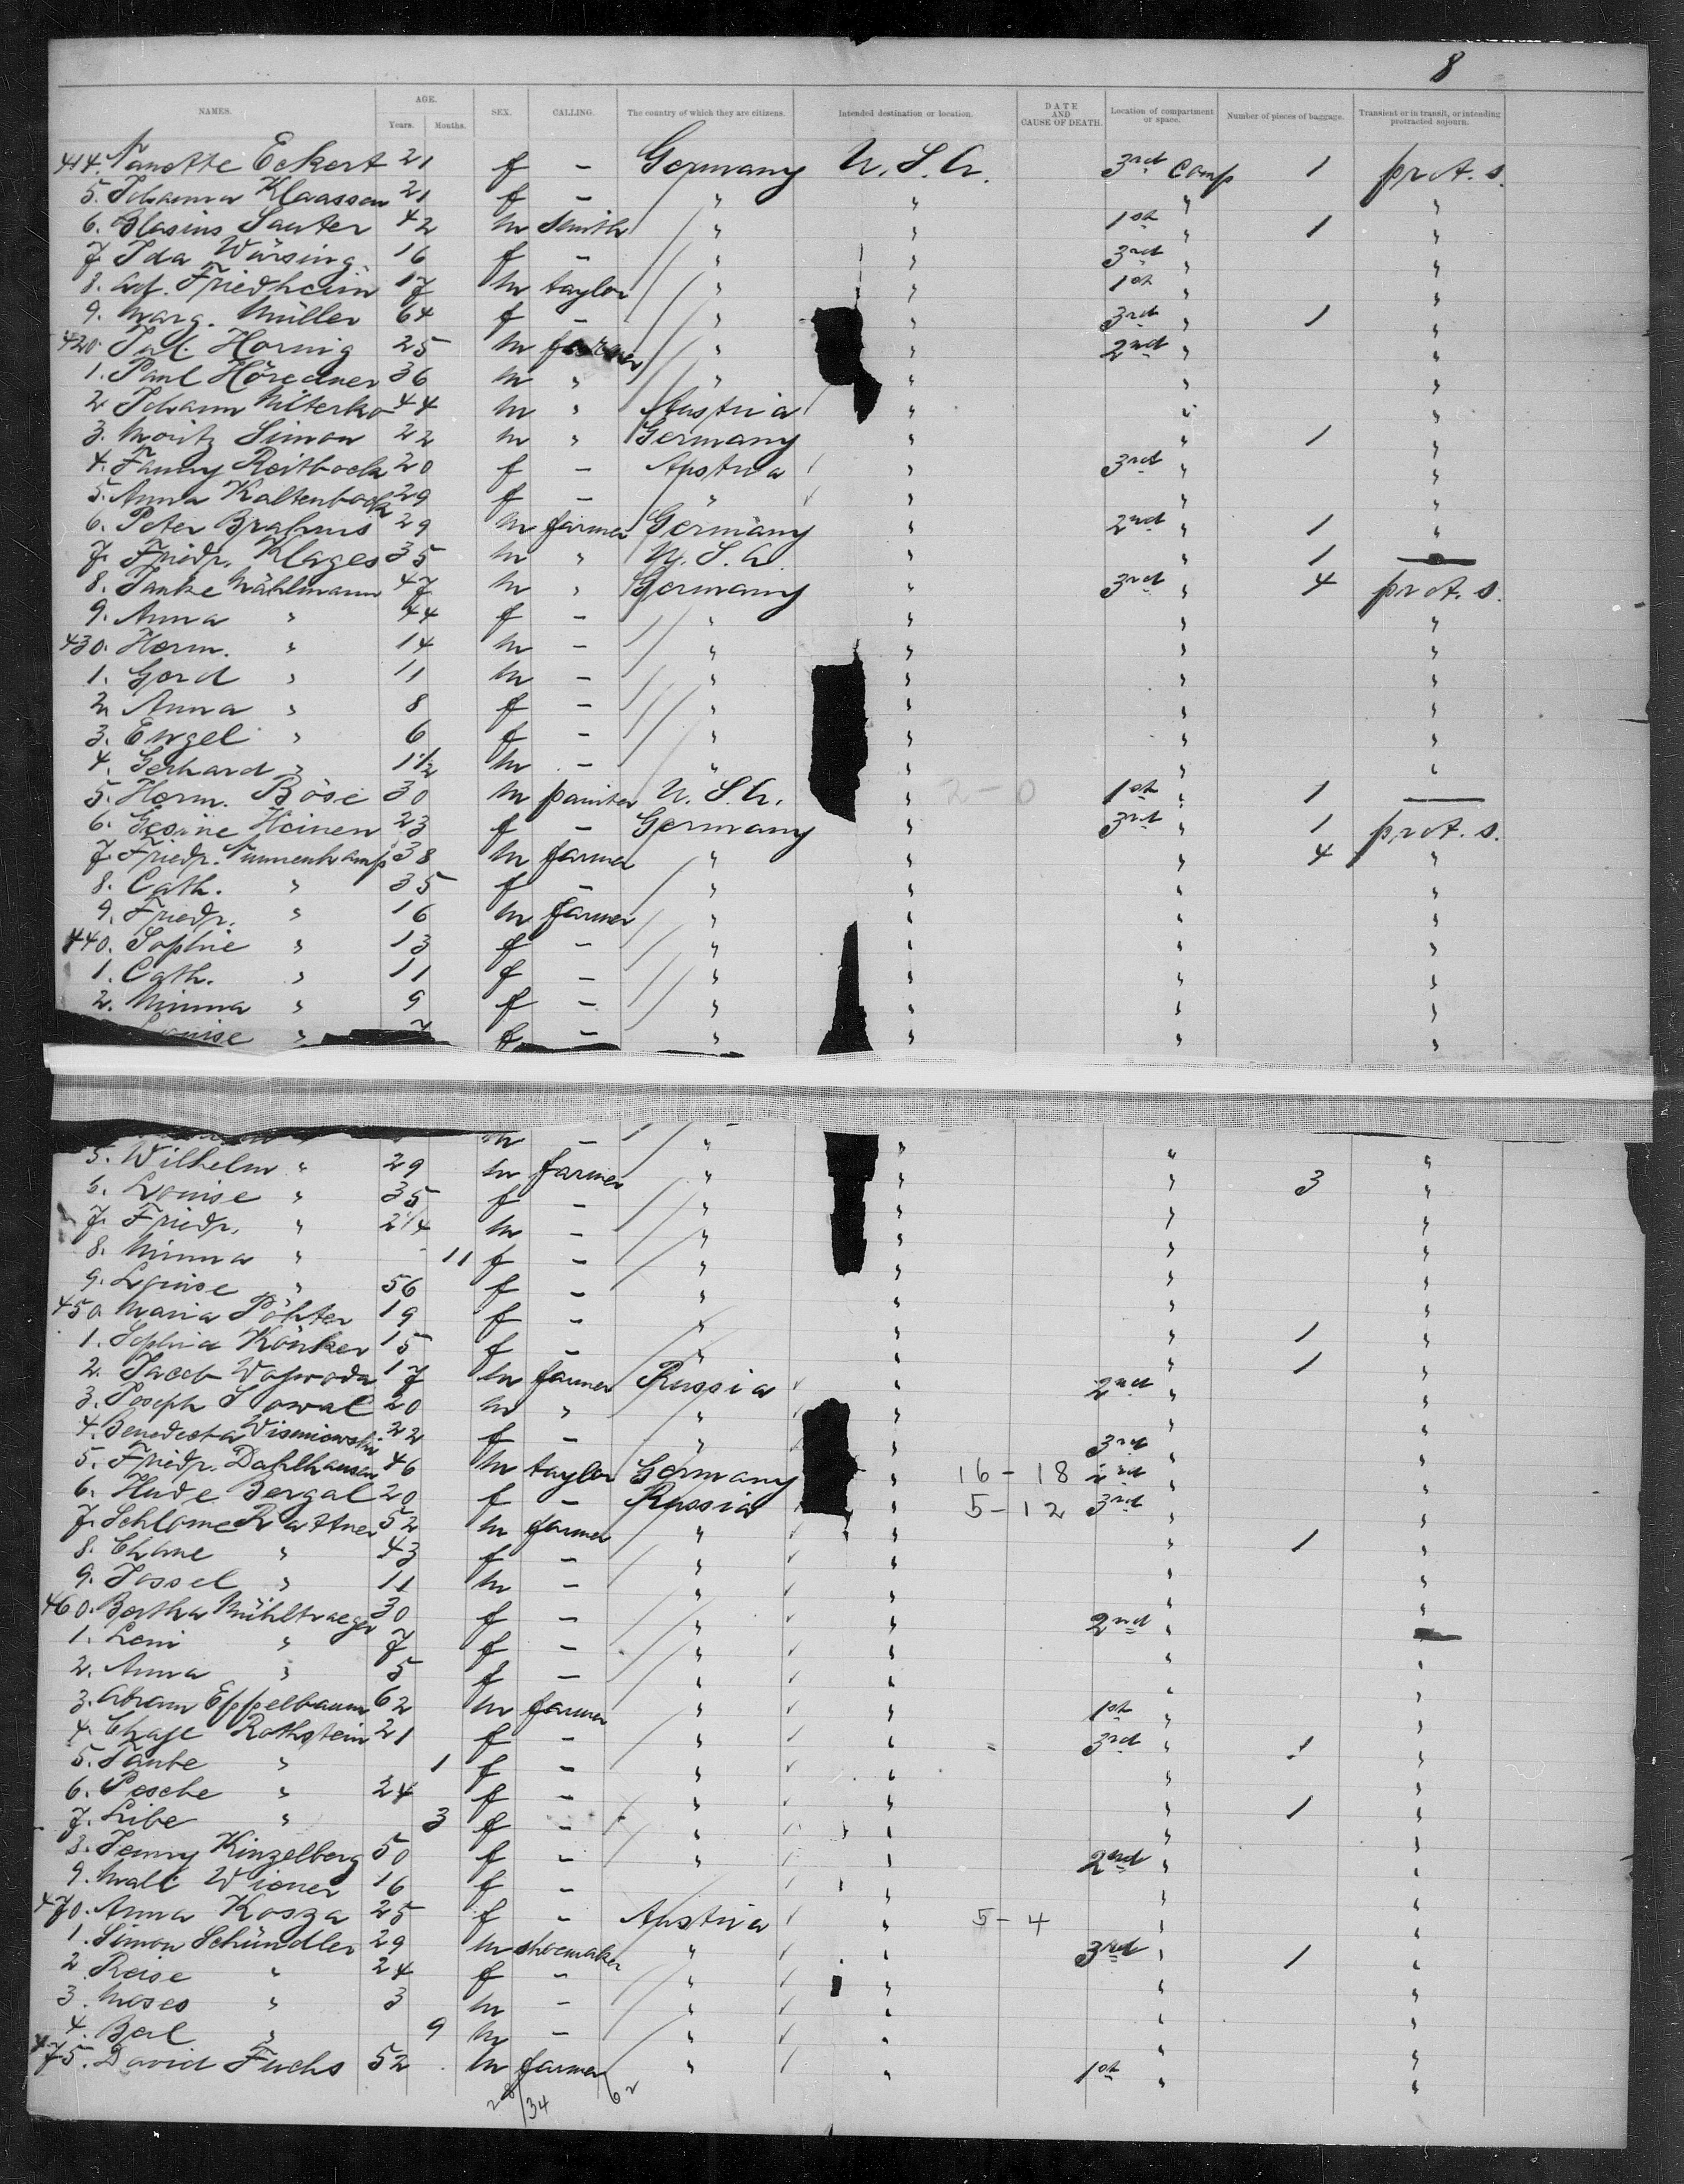 8
NAMES. AGE. Years. Months. SEX. CALLING. The country of which they are citizens. Intended destination or location. DATE AND CAUSE OF DEATH. Location of compartment or space. Number of pieces of baggage. Transient or in transit, or intending protracted sojourn.
414. Nanette Eckert 21 f - Germany U.S.A. 3rd Comp 1 prot. s.
5. Johanna Klaassen 21 f - " " " "
6. Blasius Sauter 42 m Smith " " 1st " 1 "
7. Ida Wärsing 16 f - " " 3rd " "
8. Ad. Friedheim 17 m taylor " " 1st " "
9. Marg. Müller 64 f - " " 3rd " 1 "
420. Jul. Hornig 25 m farmer " " 2nd " "
1. Paul 36 m " " " " "
2. Johann 44 m " Austria " " "
3. Moritz Simon 22 m " Germany " " 1 "
4. Fanny Reitbock 20 f - Austria " 3rd " "
5. Anna Kaltenbock 29 f - " " " "
6. Peter Brahms 29 m farmer Germany " 2nd " 1 "
7. Friedr. Klages 35 m " U.S.A. " " 1 -
8. Janke Mählmann 47 m " Germany " 3rd " 4 prot. s.
9. Anna " 44 f - " " " "
430. Herm. " 14 m - " " " "
1. Gerd " 11 m - " " " "
2. Anna " 8 f - " " " "
3. Engel " 6 f - " " " "
4. Gerhard " 1 1/2 m - " " " "
5. Herm. Böse 30 m painter U.S.A. " 2-0 1st " 1 -
6. Gesine Heinen 23 f - Germany " 3rd " 1 prot. s.
7. Friedr. Nunnenkamp 38 m farmer " " " 4 "
8. Cath. " 35 f - " " " "
9. Friedr. " 16 m farmer " " " "
440. Sophie " 13 f - " " " "
1. Cath. " 11 f - " " " "
2. Minna " 9 f - " " " "
Louise " 7 f - " " " "
m - " " " "
5. Wilhelm " 29 m farmer " " " 3 "
6. Louise " 35 f - " " " "
7. Friedr. " 2 1/4 m - " " " "
8. Minna " - 11 f - " " " "
9. Louise " 56 f - " " " "
450. Maria Pöhter 19 f - " " " 1 "
1. Sophia Könker 15 f - " " " 1 "
2. Jacob 17 m farmer Russia " 2nd " "
3. Joseph 20 m " " " " "
4. Benedicta Wisniowski 22 f - " " 3rd " "
5. Friedr. Dahlhausen 46 m taylor Germany " 16-18 " "
6. Hude Bergal 20 f - Russia " 5-12 3rd " "
7. Schlome Rattner 52 m farmer " " " 1 "
8. " 43 f - " " " "
9. Jossel " 11 m - " " " "
460. Bertha Mühltraeger 30 f - " " 2nd " -
1. Leni " 7 f - " " " "
2. Anna " 5 f - " " " "
3. Abram Eppelbaum 62 m farmer " " 1st " "
4. Chaje Rothstein 21 f - " " 3rd " 1 "
5. Taube " 1 f - " " " "
6. Pesche " 24 f - " " " 1 "
7. Libe " 3 f - " " " "
8. Jenny Kinzelberg 50 f - " " 2nd " "
9. Mali Wiener 16 f - " " " "
470. Anna Kosza 25 f - Austria " 5-4 " "
1. Simon Schündler 29 m shoemaker " " 3rd " 1 "
2. Reise " 24 f - " " " "
3. Moses " 3 m - " " " "
4. Berl " 9 m - " " " "
475. David Fuchs 52 m farmer " " 1st " "
28/34 62